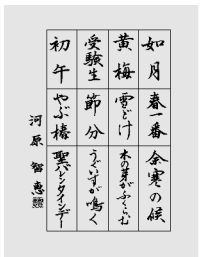 如月 春一番 余寒の候
黄梅 雪どけ 木の芽がふくらむ
受験生 節分 うぐいすが鳴く
初午 やぶ椿 聖バレンタインデー
河原智恵